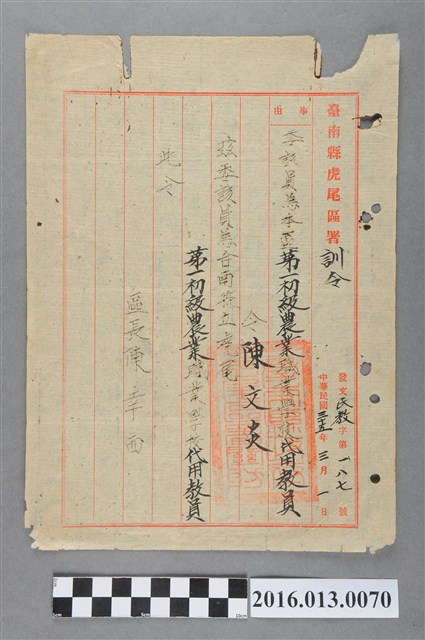 臺南縣虎尾區署訓令
發文民教字第一八七號
中華民國三十五年三月一日
事由
委該員為本區第一初級農業職業學校代用教員
令陳文炎
茲委該員為台南縣立虎尾
第一初級農業職業學校代用教員
此令
區長陳
2016.013.0070